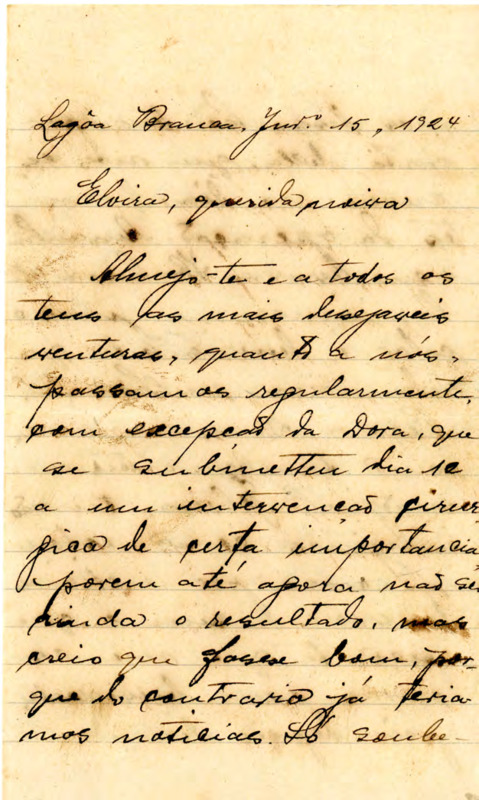 Lagôa Branca, Jun.º 15, 1924
Elvira, querida noiva
Almejo-te e a todos os
teus as mais desejaveis
venturas, quanto a nós,
passamos regularmente,
com excepcaõ da Dora, que
se submetteu dia 12
a um intervencaõ cirur
gica de certa importancia,
porem até agora naõ sei
ainda o resultado, mas
creio que fosse bom, por-
que do contrario já teria
mos noticias. Só soube-